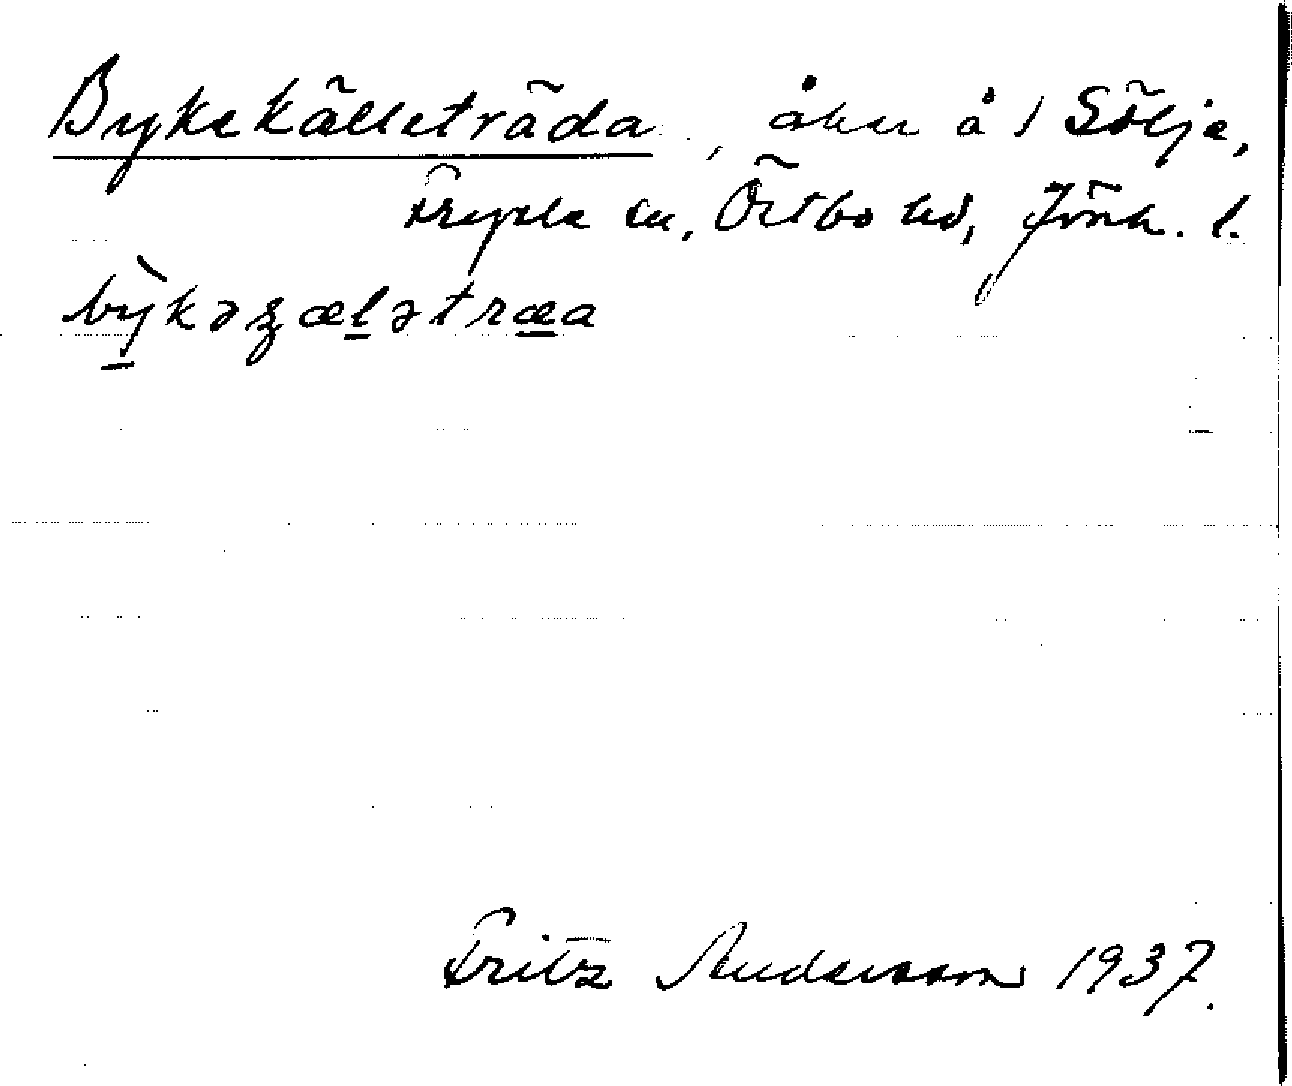 Bykekälleträda, åker å 1 Sölje,
Fryele sn, Östbo hd, Jönk. l.
bỳkəʓæləträa
Fritz Andersson 1937.